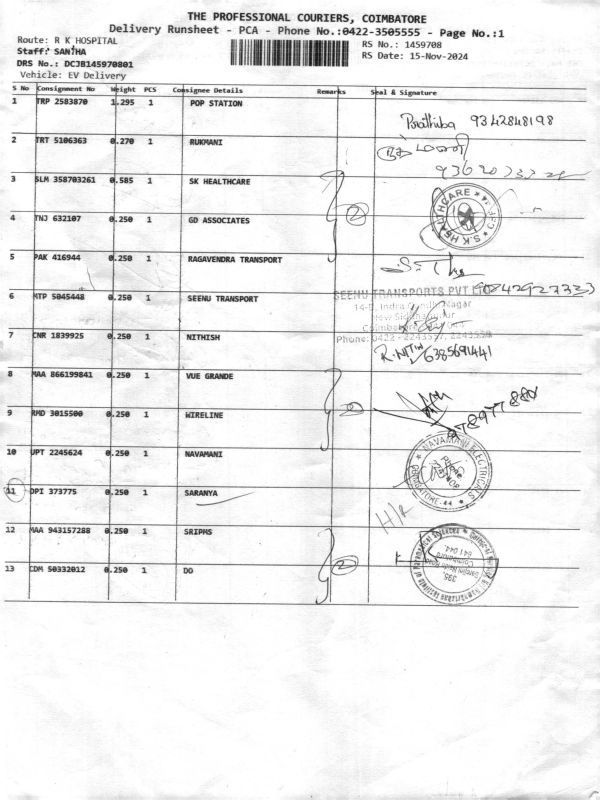 THE PROFESSIONAL COURIERS, COIMBATORE
Delivery Runsheet - PCA - Phone No.:0422-3505555 - Page No.:1
Route: R K HOSPITAL RS No.: 1459708
Staff: SANTHA RS Date: 15-Nov-2024
DRS No.: DCJB145970801
Vehicle: EV Delivery
S No Consignment No Weight PCS Consignee Details Remarks Seal & Signature
1 TRP 2583870 1.295 1 POP STATION
Prathiba 9342848198
2 TRT 5106363 0.270 1 RUKMANI
3 SLM 358703261 0.585 1 SK HEALTHCARE
S.K HEALTHCARE
4 TNJ 632107 0.250 1 GD ASSOCIATES
2
5 PAK 416944 0.250 1 RAGAVENDRA TRANSPORT
6 MTP 5045448 0.250 1 SEENU TRANSPORT
SEENU TRANSPORTS PVT LTD
Phone: 0422 - 2243557, 2243558
7 CNR 1839925 0.250 1 NITHISH
R.NITIN 6385691441
8 MAA 866199841 0.250 1 VUE GRANDE
2
9 RMD 3015500 0.250 1 WIRELINE
10 UPT 2245624 0.250 1 NAVAMANI
NAVAMANI ELECTRICALS
11 DPI 373775 0.250 1 SARANYA
H/R
12 MAA 943157288 0.250 1 SRIPMS
2
395
641 044
13 CDM 50332012 0.250 1 DO